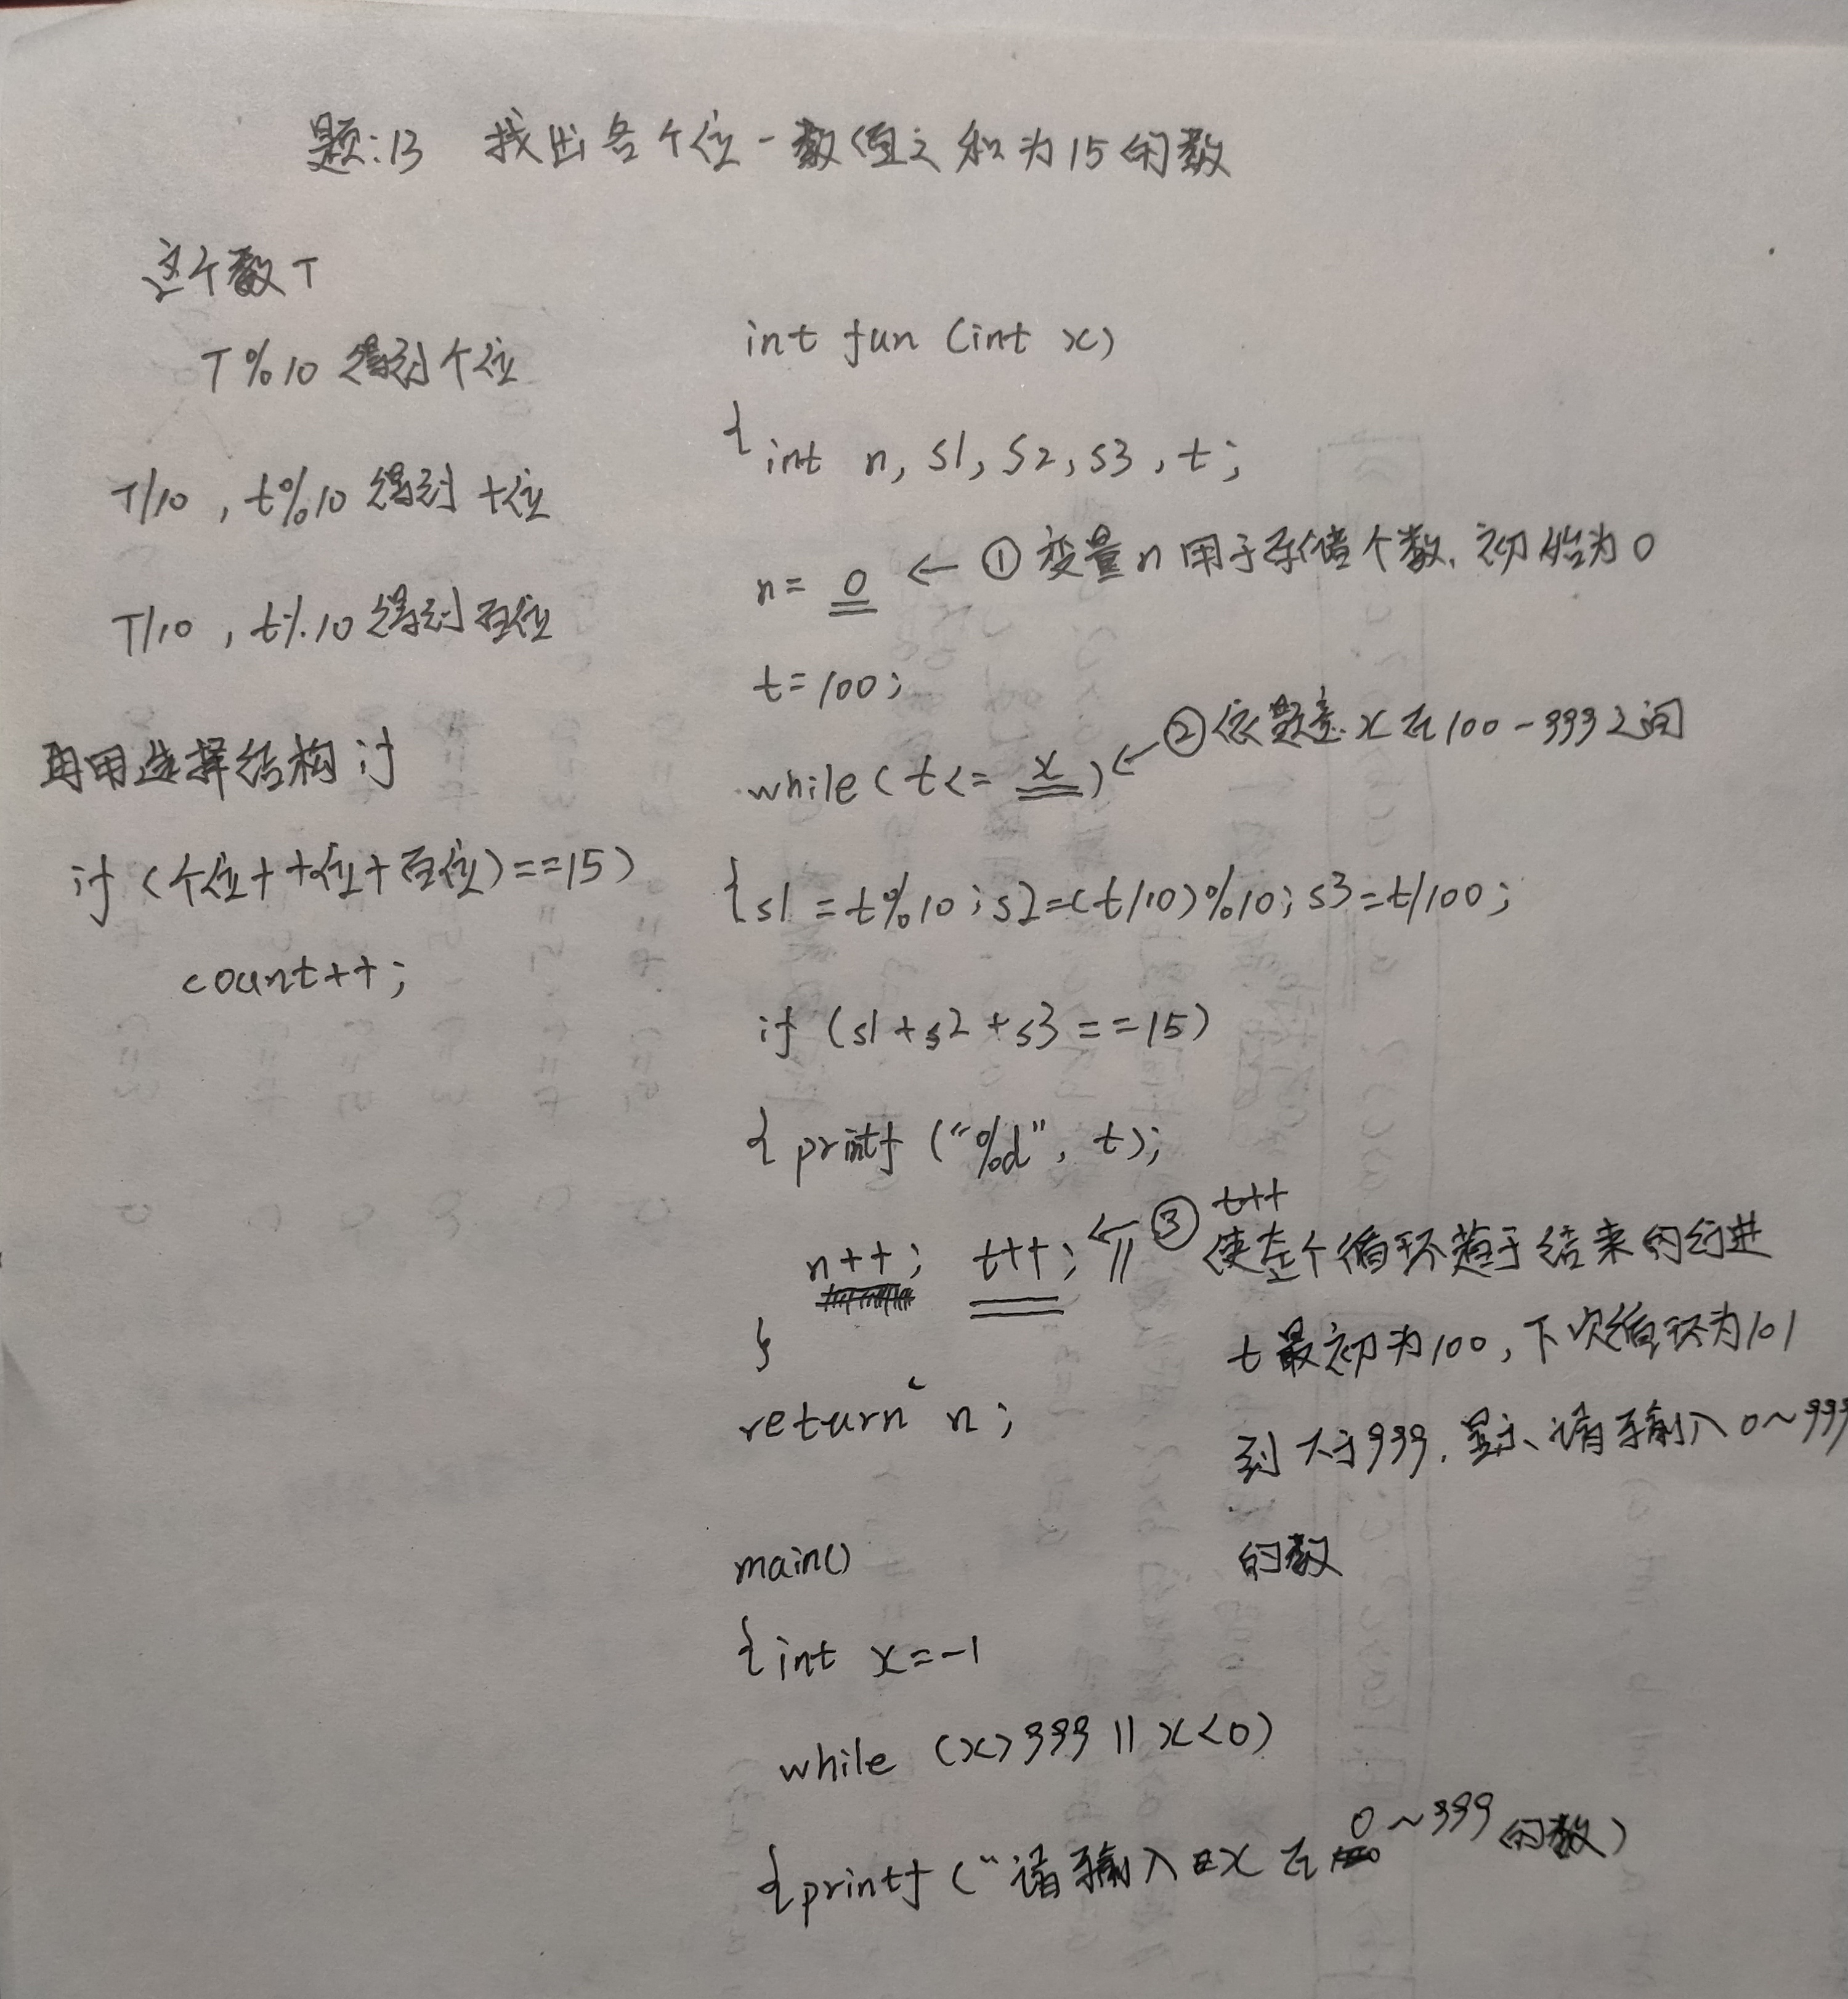 题:13 找出各个位一数值之和为15的数
这个数T
T%10 得到个位
T/10 , t%10 得到十位
T/10 , t%10 得到百位
再用选择结构 if
if (个位+十位+百位)==15)
count++;
int fun (int x)
{int n, s1, s2, s3, t;
n= 0 ← ① 变量n用于存储个数, 初始为0
t=100;
while(t<= x) ← ②依题意 x在100-999之间
{s1=t%10; s2=(t/10)%10; s3=t/100;
if (s1+s2+s3==15)
{printf ("%d", t);
n++; t++; ← ③ t++
使整个循环趋于结束的行进
}
t最初为100, 下次循环为101
return n;
到大于999, 显示、请输入0~999
的数
main()
{int x=-1
while (x>999 || x<0)
{printf ("请输入x在0~999的数)